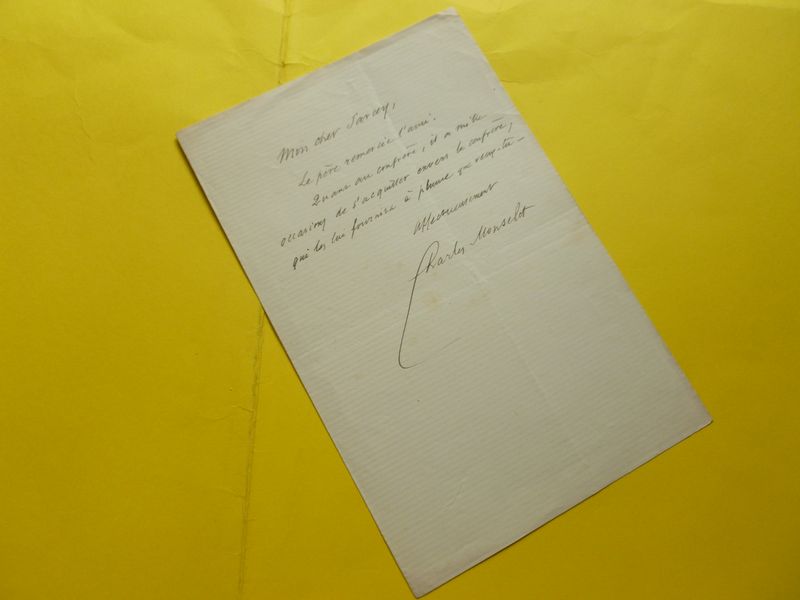 Mon cher Sarcey,
Le père remercie l'ami.
Quant au confrère, il a mille
occasions de s'acquitter envers le confrère,
qui les lui fournira à plume que
Affectueusement
Charles Monselet